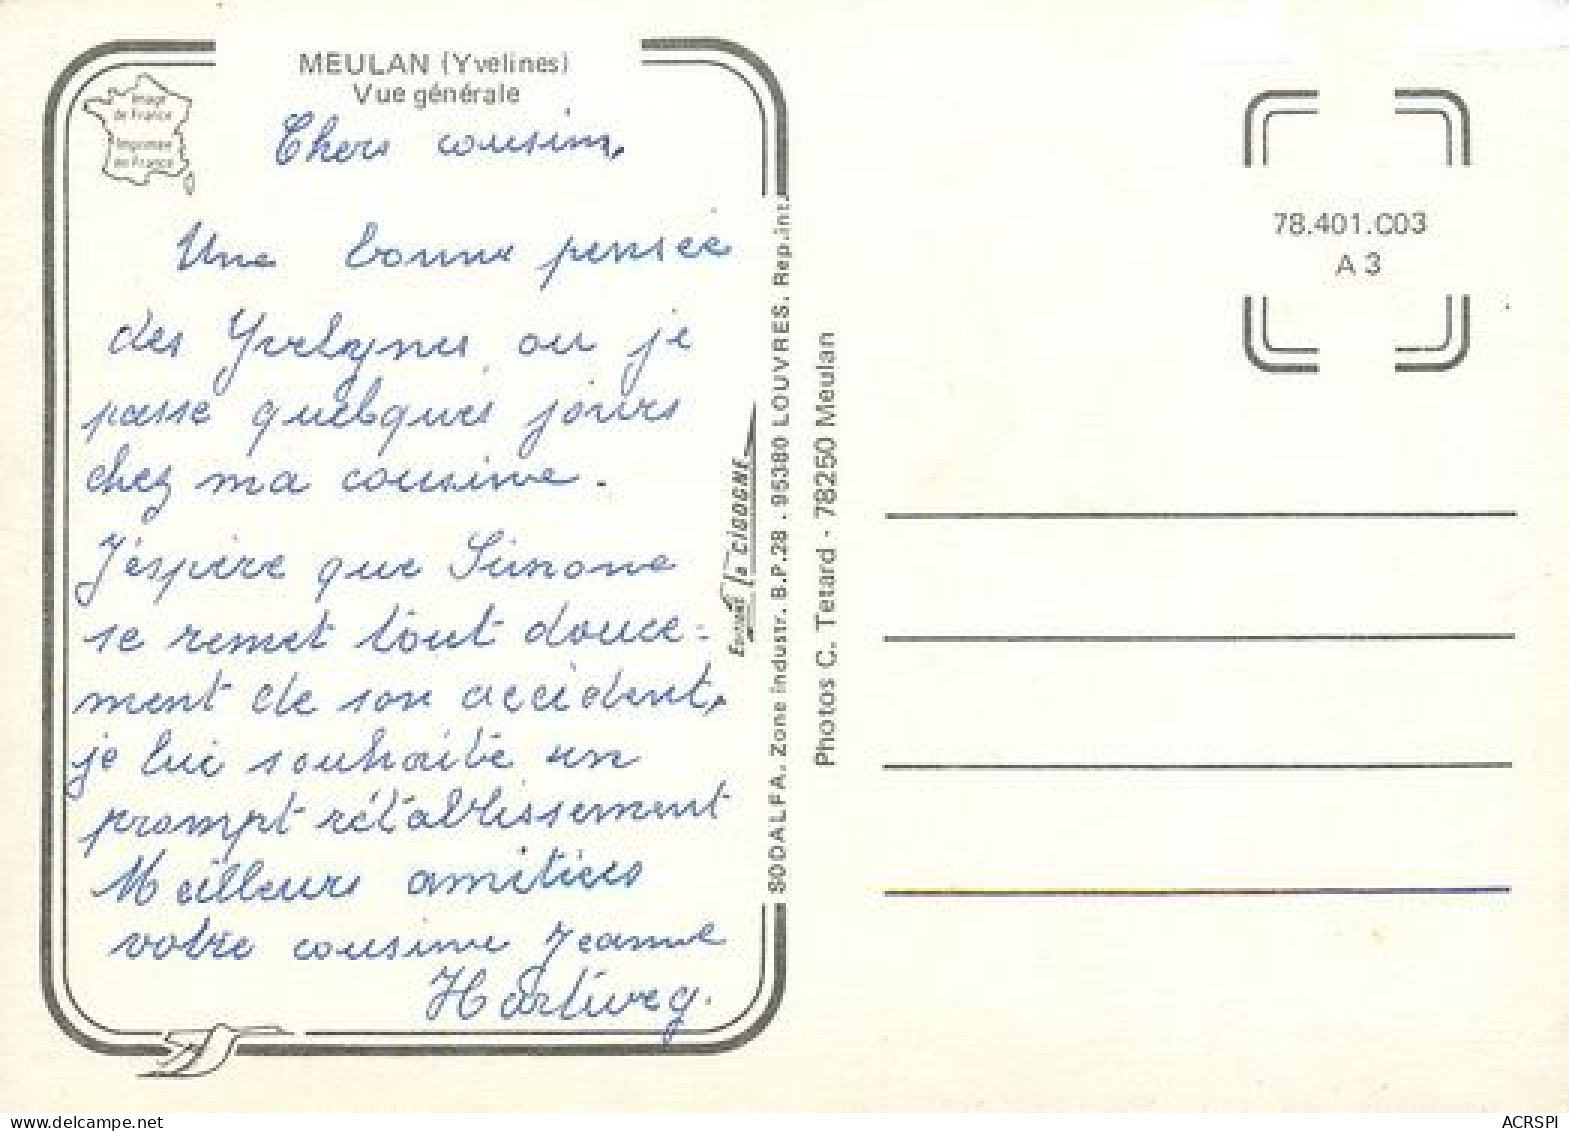 MEULAN (Yvelines)
Vue générale
Image
de France
Imprimée
en France
Chers cousins,
Une bonne pensée
des Yvelynes ou je
passe quelques jours
chez ma cousine.
J'éspère que Simone
se remet tout douce-
ment de son accident,
je lui souhaite un
prompt rétablissement
Meilleurs amitiées
votre cousine Jeanne
Hartweg.
Editions la CIGOGNE
SODALFA. Zone industr. B.P.28 . 95380 LOUVRES. Rep.int.
Photos C. Tetard - 78250 Meulan
78.401.C03
A 3
ACRSPI